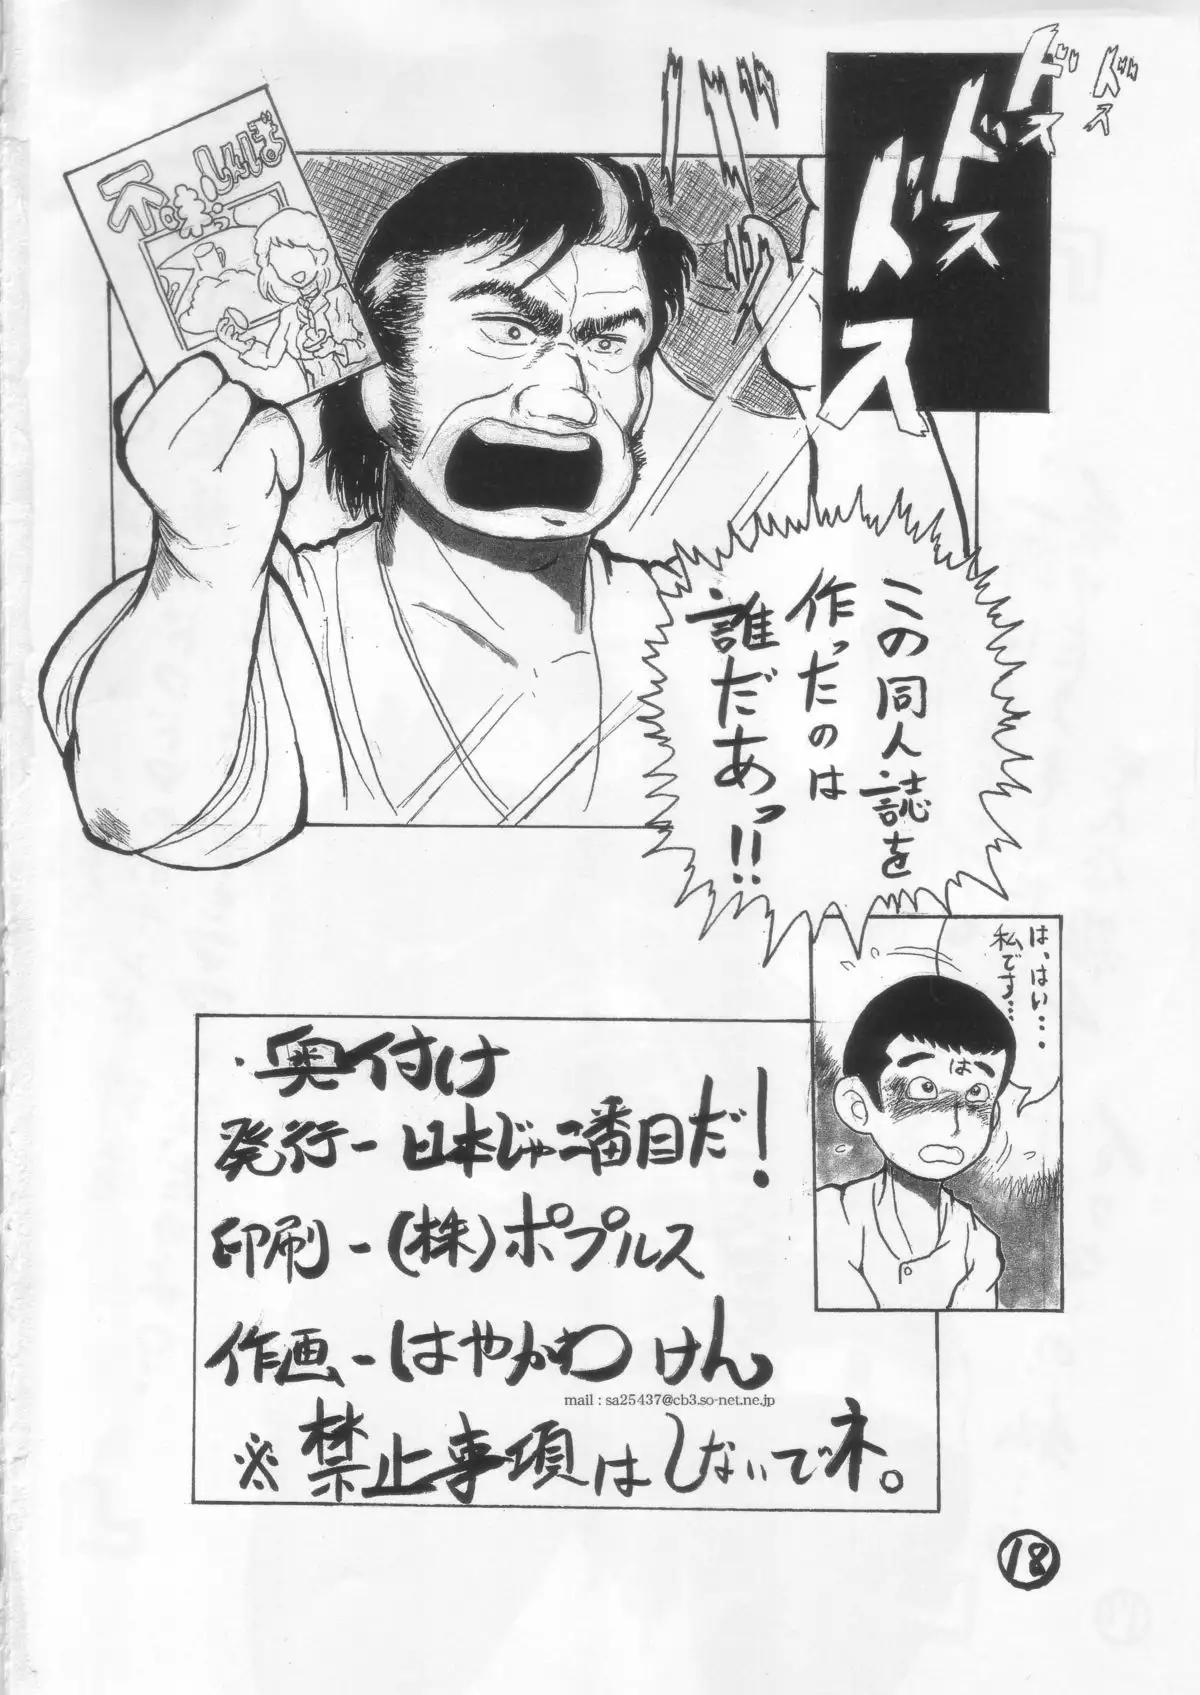 ドス
ドス
ドス
ドス
この同人誌を
作ったのは
誰だあっ!!
は、はい…
私です…
は
・奥付け
発行ー日本じゃ二番目だ!
印刷ー(株)ポプルス
作画ーはやかわ けん
mail : sa25437@cb3.so-net.ne.jp
※禁止事項はしないでネ。
18